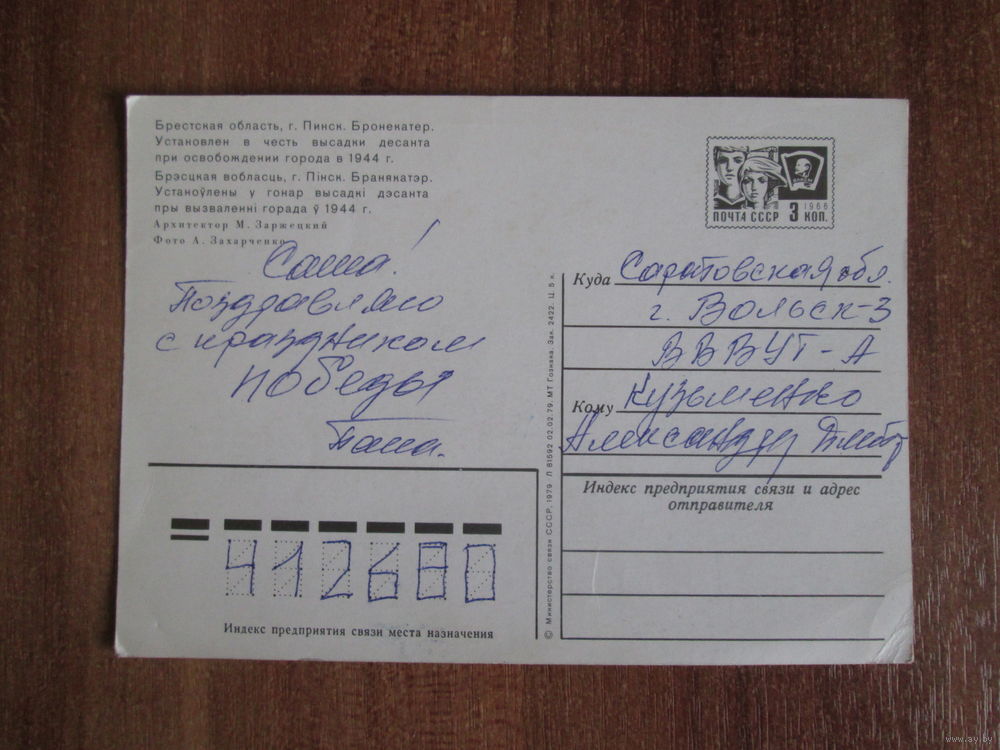 Брестская область, г. Пинск. Бронекатер.
Установлен в честь высадки десанта
при освобождении города в 1944 г.
Брэсцкая вобласць, г. Пінск. Бранякатэр.
Устаноўлены у гонар высадкі дэсанта
пры вызваленні горада ў 1944 г.
Архитектор М. Заржецкий
Фото А. Захарченко
Саша!
Поздравляю
с праздником
победы
Папа.
412680
Индекс предприятия связи места назначения
© Министерство связи СССР, 1979 Л 81592 02.02.79. МТ Гознака. Зак. 2422. Ц. 5 к.
1966
ПОЧТА СССР 3 КОП.
Куда Саратовская обл.
г. Вольск-3
ВВВУТ-А
Кому Кузьменко
Александру
Индекс предприятия связи и адрес
отправителя
www.ay.by